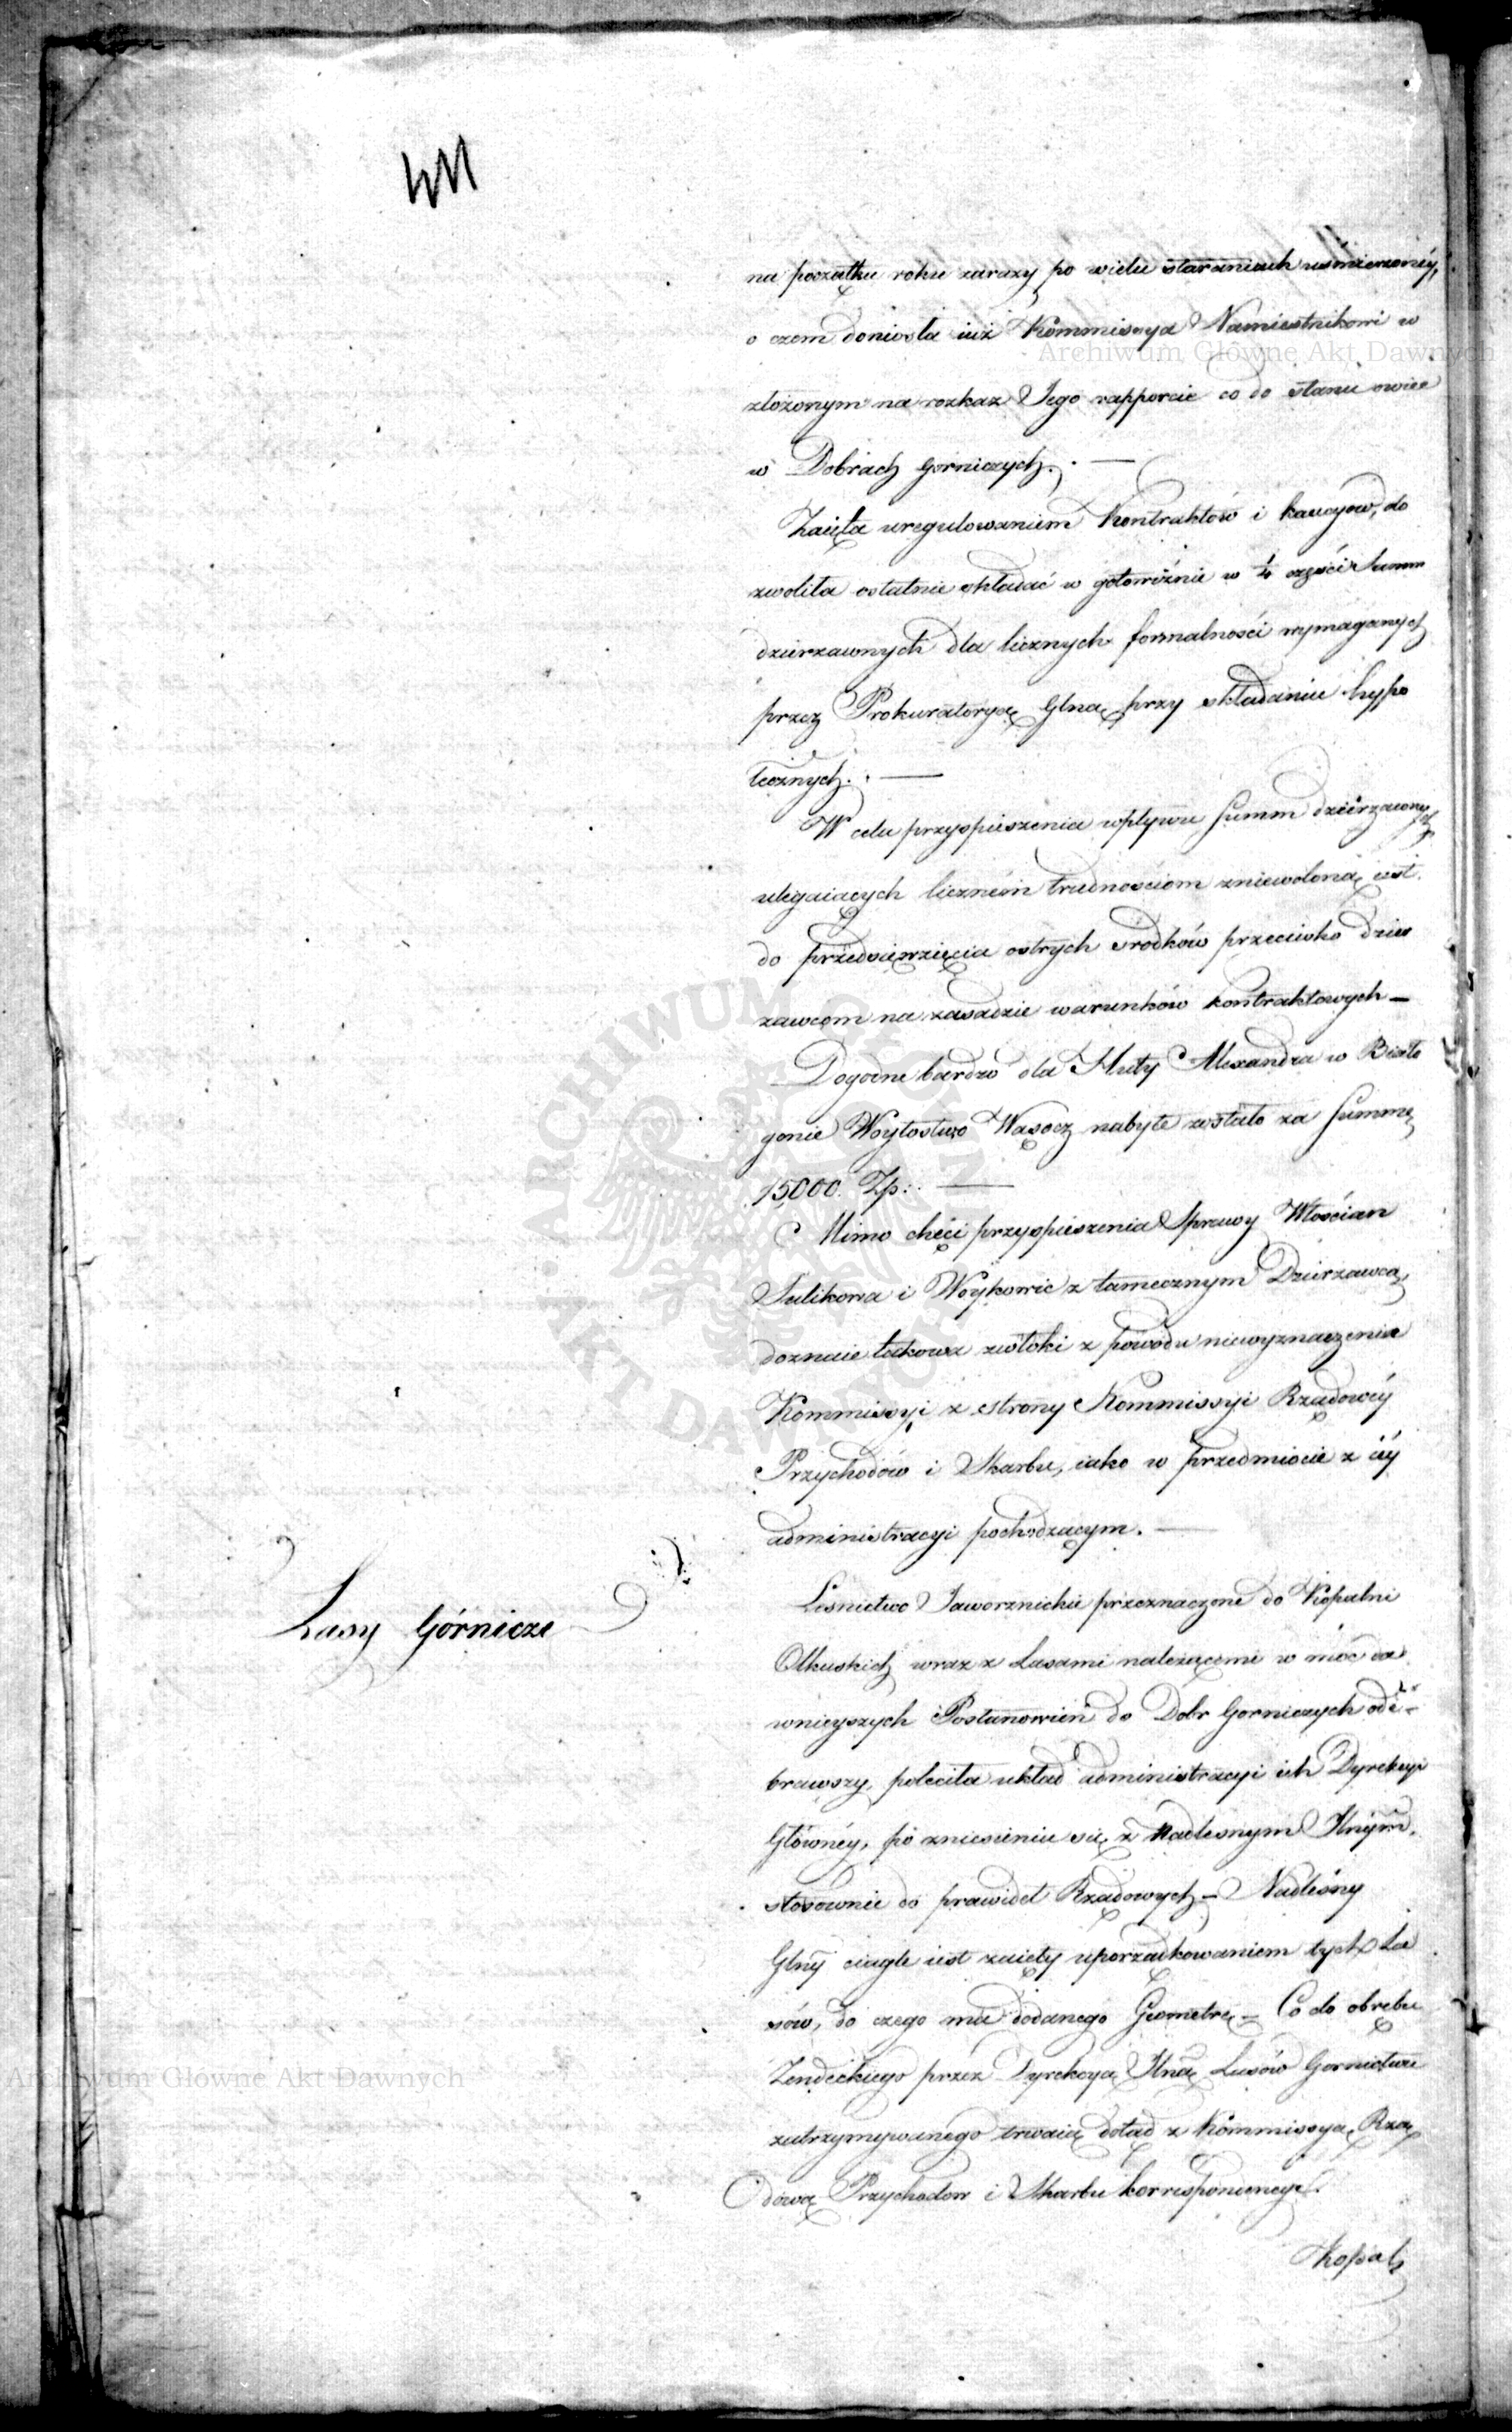 411
na początku roku zarazy po wielu staraniach uśmierzonéy,
o czem doniosła iuż Kommissya Namiestnikowi w
złożonym na rozkaz Jego rapporcie co do stanu owiec
w Dobrach Gorniczych. —
Zaięta uregulowaniem Kontraktów i kaucyow, do
zwoliła ostatnie składać w gotowiźnie w ¼ części Summ
dzierzawnych dla licznych formalności wymaganych
przez Prokuratoryą Glną przy składaniu hypo
tecznych. —
W celu przyspieszenia wpływu Summ dzierzawnych
ulegaiących licznem trudnościom zniewoloną iest
do przedsięwzięcia ostrych srodków przeciwko dzier
zawcom na zasadzie warunków kontraktowych —
Dogodne bardzo dla Huty Alexandra w Biało
gonie Woytostwo Wąsocz nabyte zostało za Summę
15,000. Zp: —
Mimo chęci przyspieszenia Sprawy Włościan
Sulikowa i Woykowic z tamecznym Dzierzawcą,
doznaie takowa zwłoki z powodu niewyznaczenia
Kommissyi z strony Kommissyi Rządowéy
Przychodów i Skarbu, iako w przedmiocie z iéy
administracyi pochodzącym. —
Lasy Górnicze
Lesnictwo Jaworznickie przeznaczone do Kopalni
Olkuskich wraz z Lasami należącemi w moc da
wnieyszych Postanowień do Dobr Gorniczych ode-
brawszy, poleciła układ administracyi ich Dyrekcyi
Główney, po zniesieniu się z Nadlesnym Glnym,
stosownie do prawideł Rządowych — Nadleśny
Glny ciągle iest zaięty uporządkowaniem tych La
sów, do czego ma dodanego Geometrę — Co do obrębu
Zendeckiego przez Dyrekcyą Glną Lasów Gornictwu
zatrzymywanego trwaią dotąd z Kommissyą Rzą
dową Przychodow i Skarbu korrespondencye.
Kopal
Archiwum Główne Akt Dawnych
Archiwum Główne Akt Dawnych
ARCHIWUM GŁÓWNE AKT DAWNYCH